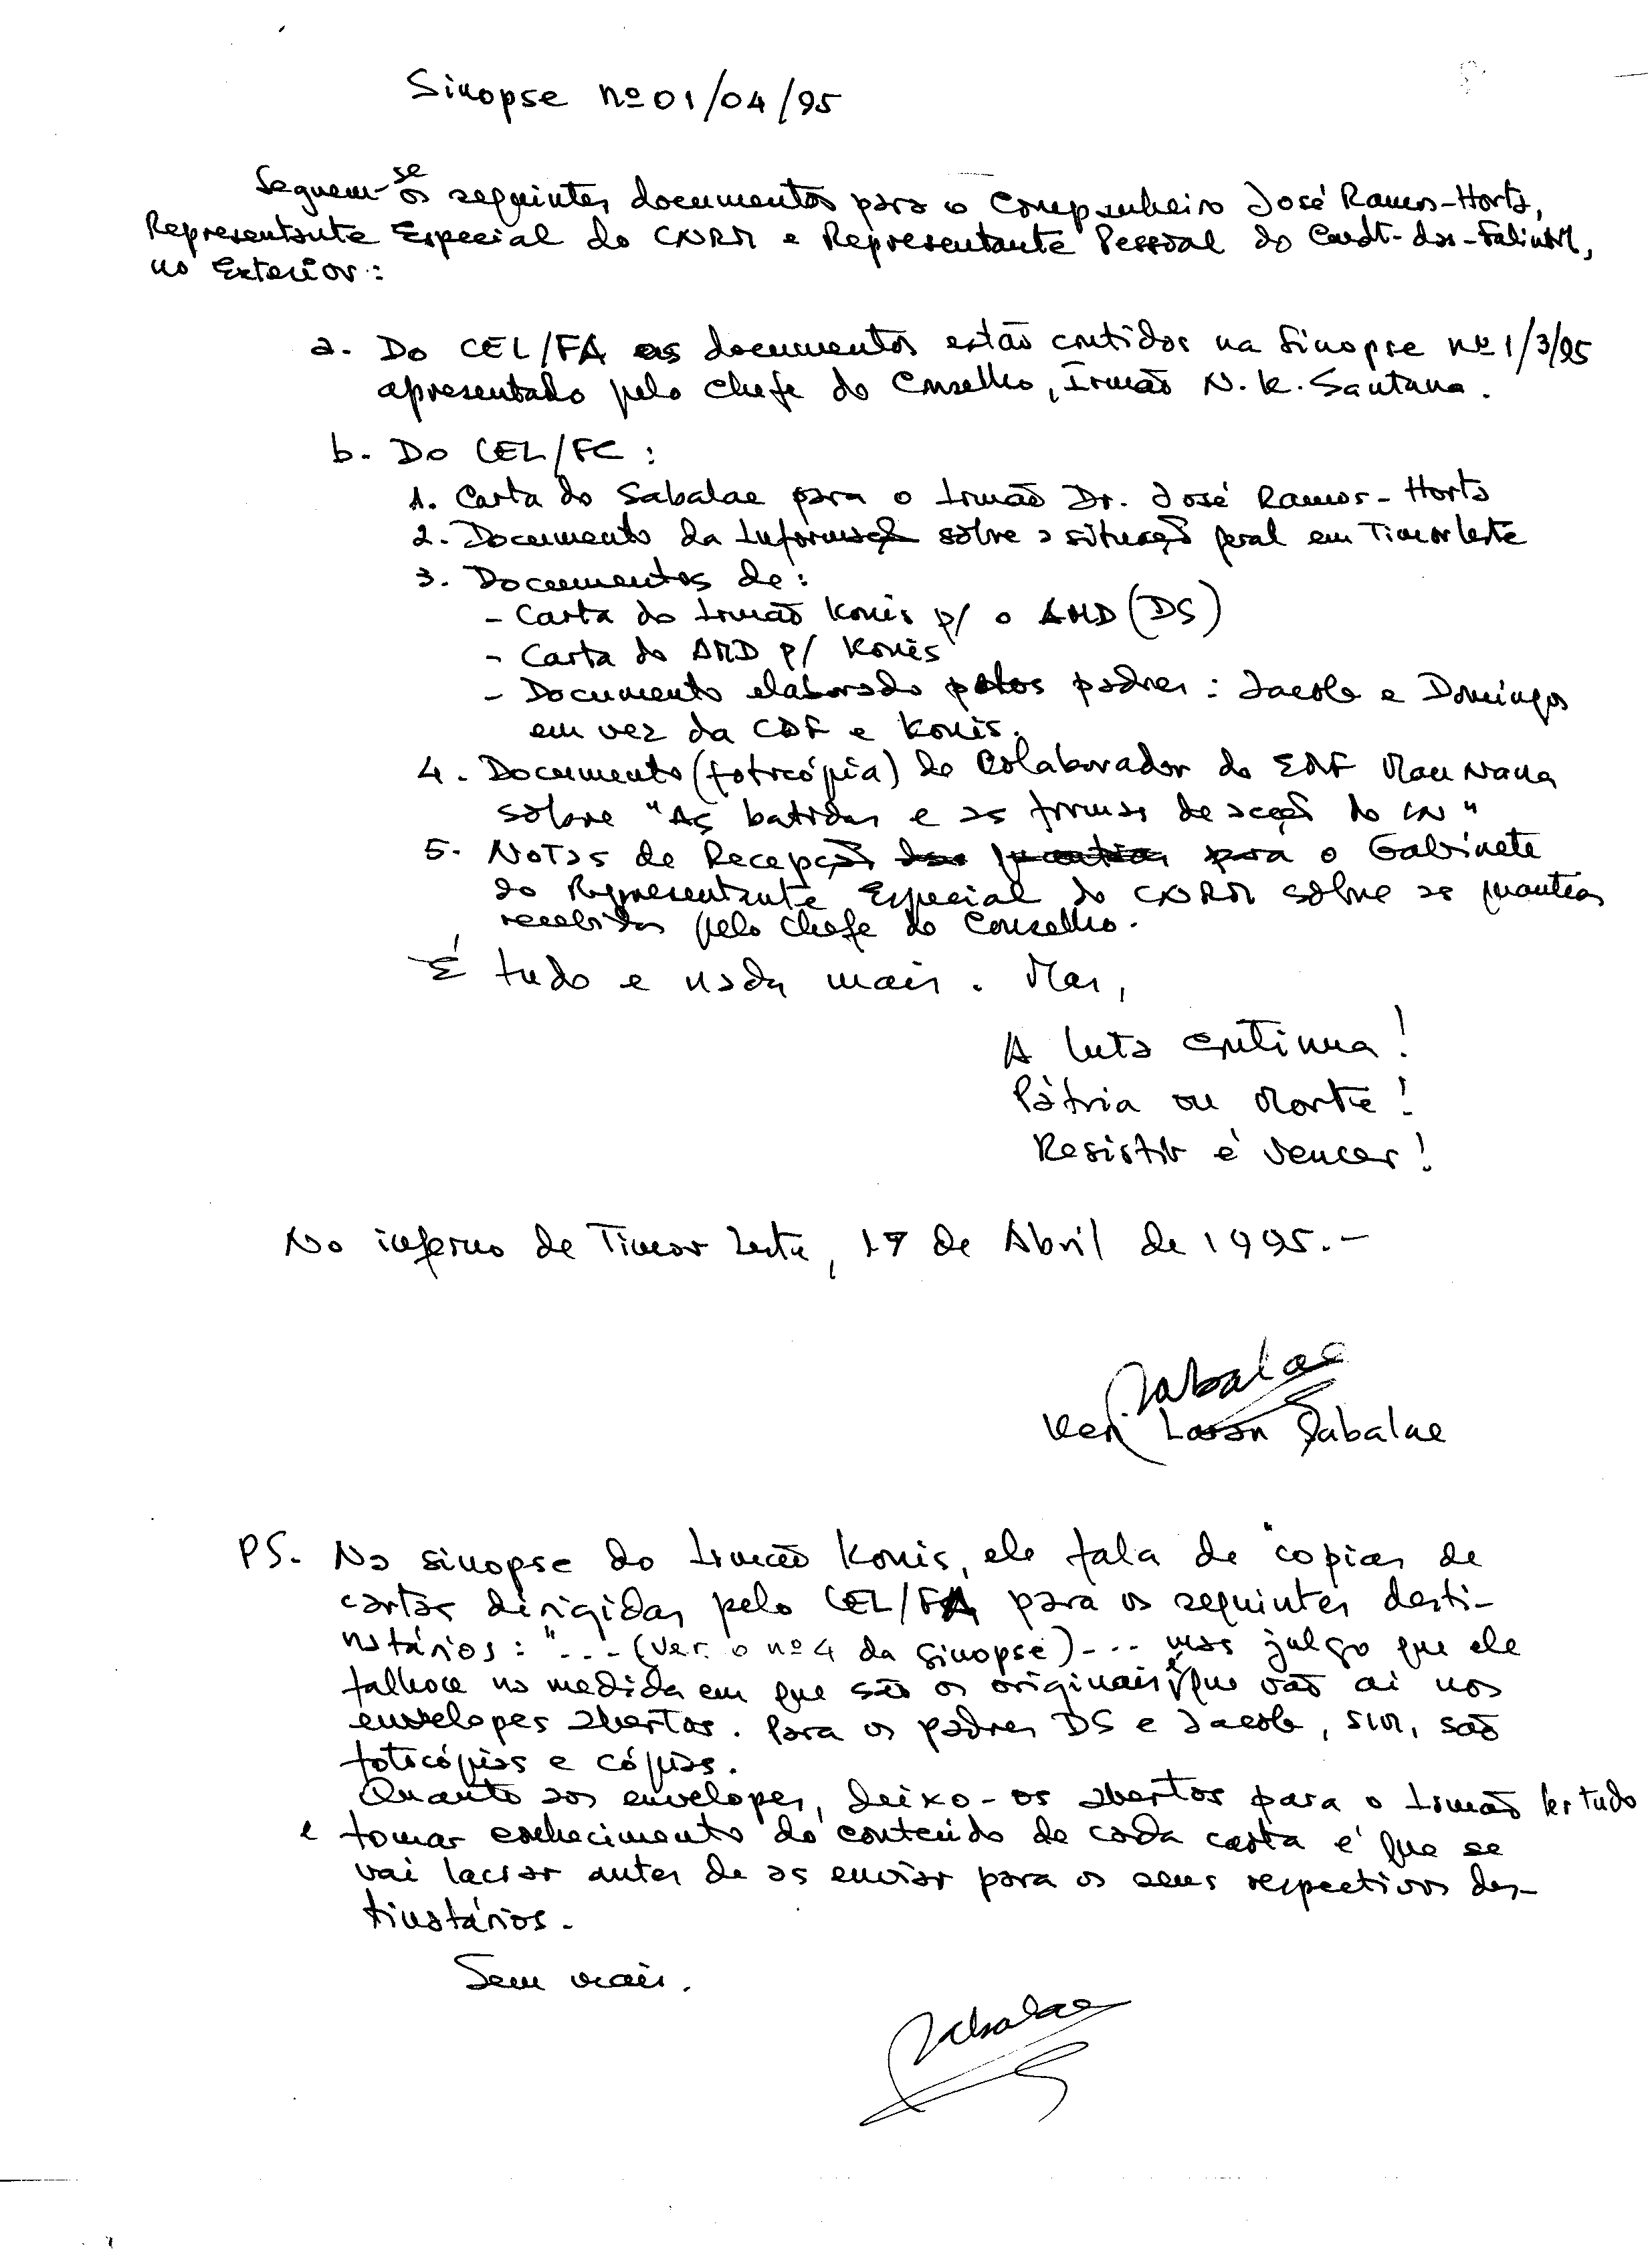 Sinopse nº 01/04/95
Seguem-se os seguintes documentos para o Companheiro José Ramos-Horta,
Representante Especial do CNRM e Representante Pessoal do Cmdt-das-Falintil,
no Exterior:
a. Do CEL/FA os documentos estão contidos na Sinopse nº 1/3/95
apresentado pelo chefe do Conselho, Irmão N. K. Santana.
b. Do CEL/FC:
1. Carta do Sabalae para o Irmão Dr. José Ramos-Horta
2. Documento da Informação sobre a situação geral em Timor leste
3. Documentos de:
- Carta do Irmão Konis p/ o AMD (DS)
- Carta do AMD p/ Konis
- Documento elaborado pelos padres: Jacob e Domingos
em vez da CDF e Konis.
4. Documento (fotocópia) do Colaborador do EDF Mau Nana
sobre "As batidas e as formas de acção do IN"
5. Notas de Recepção para o Gabinete
do Representante Especial do CNRM sobre as quantias
recebidas pelo chefe do Conselho.
É tudo e nada mais. Mas,
A luta continua!
Pátria ou Morte!
Resistir é Vencer!
No inferno de Timor Leste, de Abril de 1995.-
Sabalae
Keri Laran Sabalae
PS. Na sinopse do Irmão Konis, ele fala de "copias de
cartas dirigidas pelo CEL/FA para os seguintes desti-
natários:"... (ver o nº 4 da sinopse)... mas julgo que ele
falhou na medida em que são os originais que vão aí nos
envelopes abertos. Para os padres DS e Jacob, SIM, são
fotocópias e cópias.
Quanto aos envelopes, deixo-os abertos para o Irmão ler tudo
e tomar conhecimento do conteúdo de cada carta é que se
vai lacrar antes de as enviar para os seus respectivos des-
tinatários.
Sem mais.
Sabalae